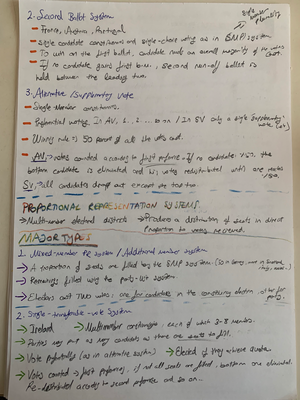 2. Second Ballot System
- France, Austria, Portugal
- Single candidate constituencies and single-choice voting as in SMP system
- To win on the first ballot, candidate needs an overall majority of the votes
- If no candidate gains first ballot, second run-off ballot is
held between the leading two.
3. Alternative / Supplementary Vote
- Single Member constituencies.
- Preferential voting. In AV, 1, 2 ... to n / In SV only a single supplementary vote
- Winning rule is 50 percent of all the votes cast.
- AV → votes counted according to first preference - If no candidate >50% the
bottom candidate is eliminated and his votes redistributed until one reaches
>50%.
SV → all candidates drop out except the top two.
PROPORTIONAL REPRESENTATION SYSTEMS.
→ Multi-member electoral districts → Produce a distribution of seats in direct
proportion to votes received.
MAJOR TYPES
1. Mixed-member PR System / Additional member system
→ A proportion of seats are filled by the SMP system.
→ Remaining filled using the party-list system.
→ Electors cast TWO votes: one for candidate in the constituency election, other for
party.
2. Single-transferable-vote System
→ Ireland → Multimember constituencies, each of which 3-8 members.
→ Parties may put as many candidates as there are seats to fill.
→ Vote preferentially (as in alternative system) → Elected if they achieve quota
→ Votes counted → first preferences, if not all seats are filled, bottom one eliminated.
Re-distributed according to second preference and so on...